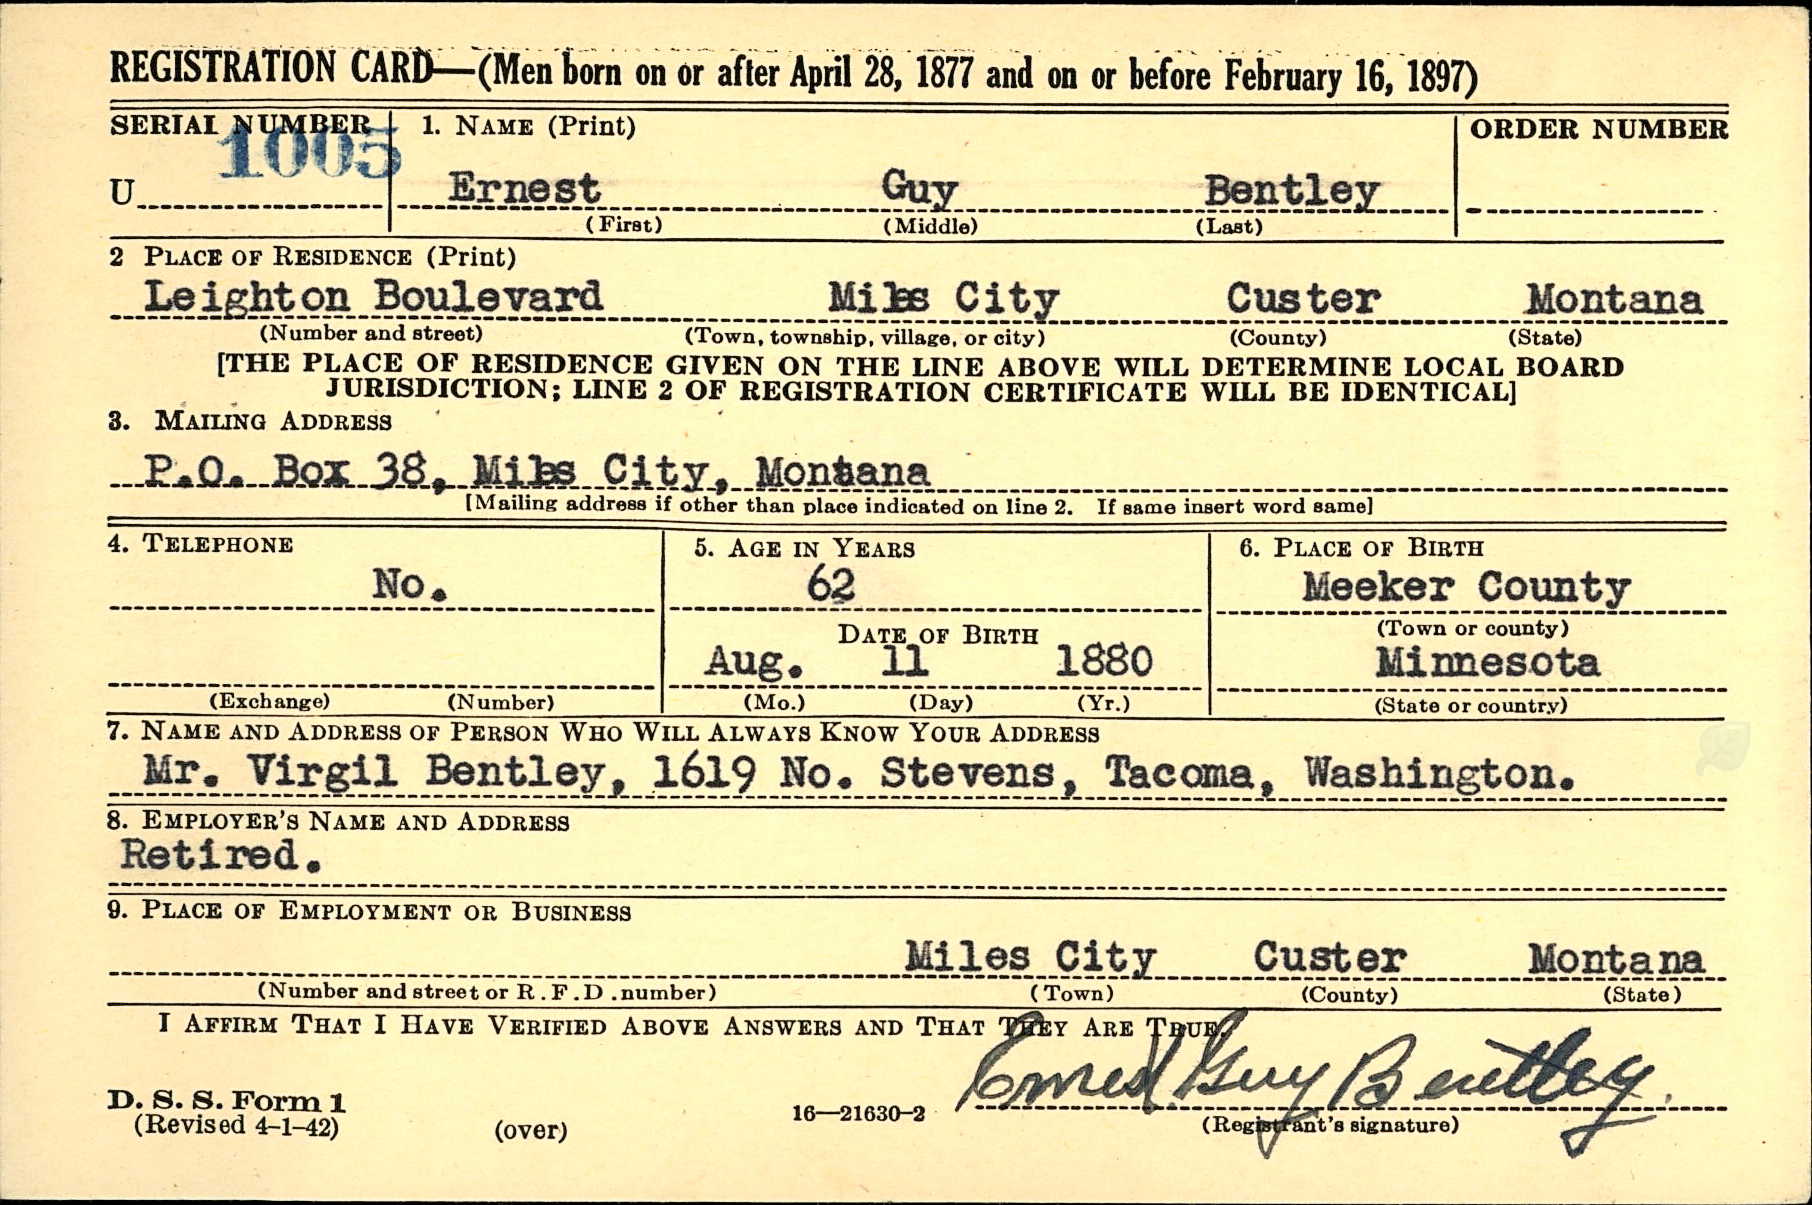 REGISTRATION CARD—(Men born on or after April 28, 1877 and on or before February 16, 1897)
SERIAL NUMBER 1. NAME (Print) ORDER NUMBER
1005
U Ernest Guy Bentley
(First) (Middle) (Last)
2 PLACE OF RESIDENCE (Print)
Leighton Boulevard Miles City Custer Montana
(Number and street) (Town, township, village, or city) (County) (State)
[THE PLACE OF RESIDENCE GIVEN ON THE LINE ABOVE WILL DETERMINE LOCAL BOARD
JURISDICTION; LINE 2 OF REGISTRATION CERTIFICATE WILL BE IDENTICAL]
3. MAILING ADDRESS
P.O. Box 38, Miles City, Montana
[Mailing address if other than place indicated on line 2. If same insert word same]
4. TELEPHONE 5. AGE IN YEARS 6. PLACE OF BIRTH
No. 62 Meeker County
DATE OF BIRTH (Town or county)
Aug. 11 1880 Minnesota
(Exchange) (Number) (Mo.) (Day) (Yr.) (State or country)
7. NAME AND ADDRESS OF PERSON WHO WILL ALWAYS KNOW YOUR ADDRESS
Mr. Virgil Bentley, 1619 No. Stevens, Tacoma, Washington.
8. EMPLOYER'S NAME AND ADDRESS
Retired.
9. PLACE OF EMPLOYMENT OR BUSINESS
Miles City Custer Montana
(Number and street or R.F.D. number) (Town) (County) (State)
I AFFIRM THAT I HAVE VERIFIED ABOVE ANSWERS AND THAT THEY ARE TRUE.
Ernest Guy Bentley.
D. S. S. Form 1
(Revised 4-1-42) (over) 16—21630-2 (Registrant's signature)